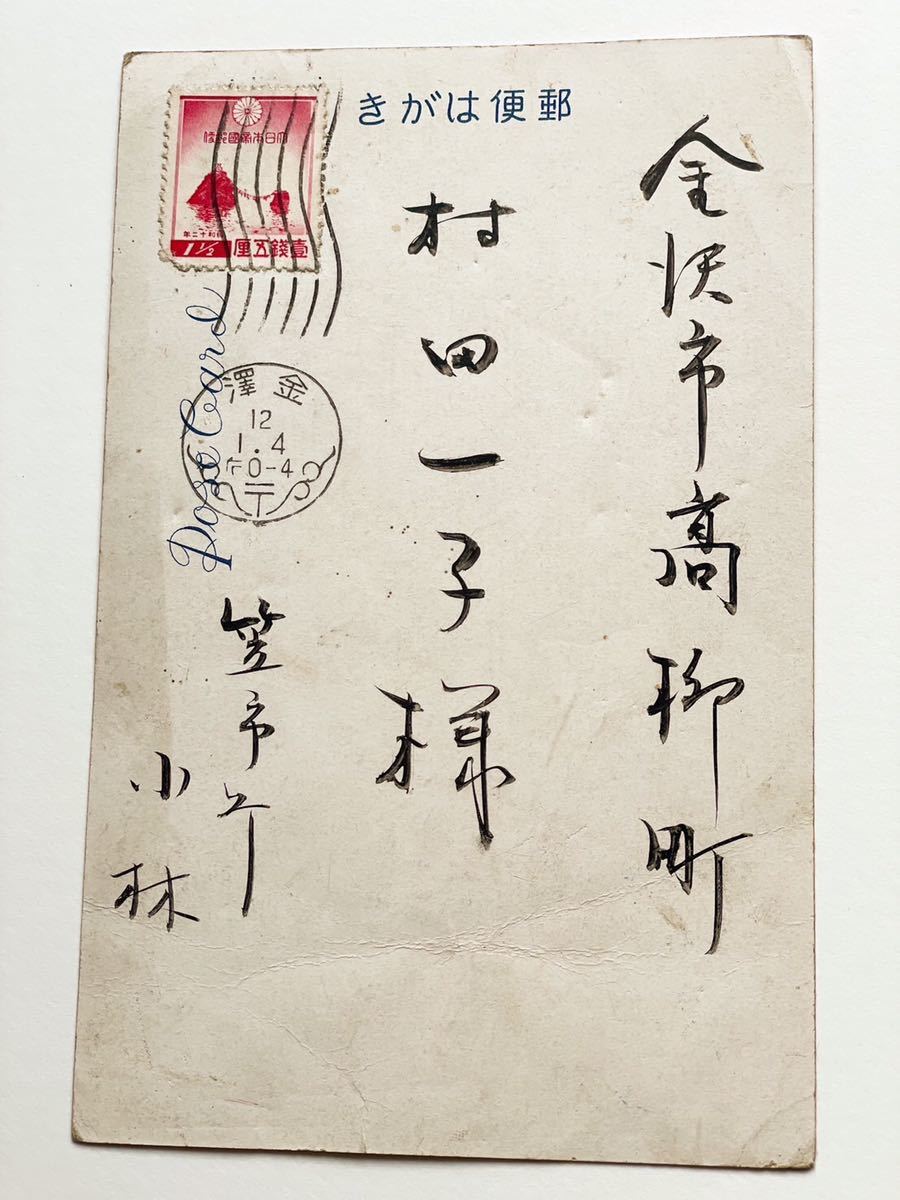 きがは便郵
金沢市高柳町
村田一子様
笠市丁
小林
大日本帝國郵便
昭和十二年
壹錢五厘
1½
Post Card
澤金
12
1.4
0-4